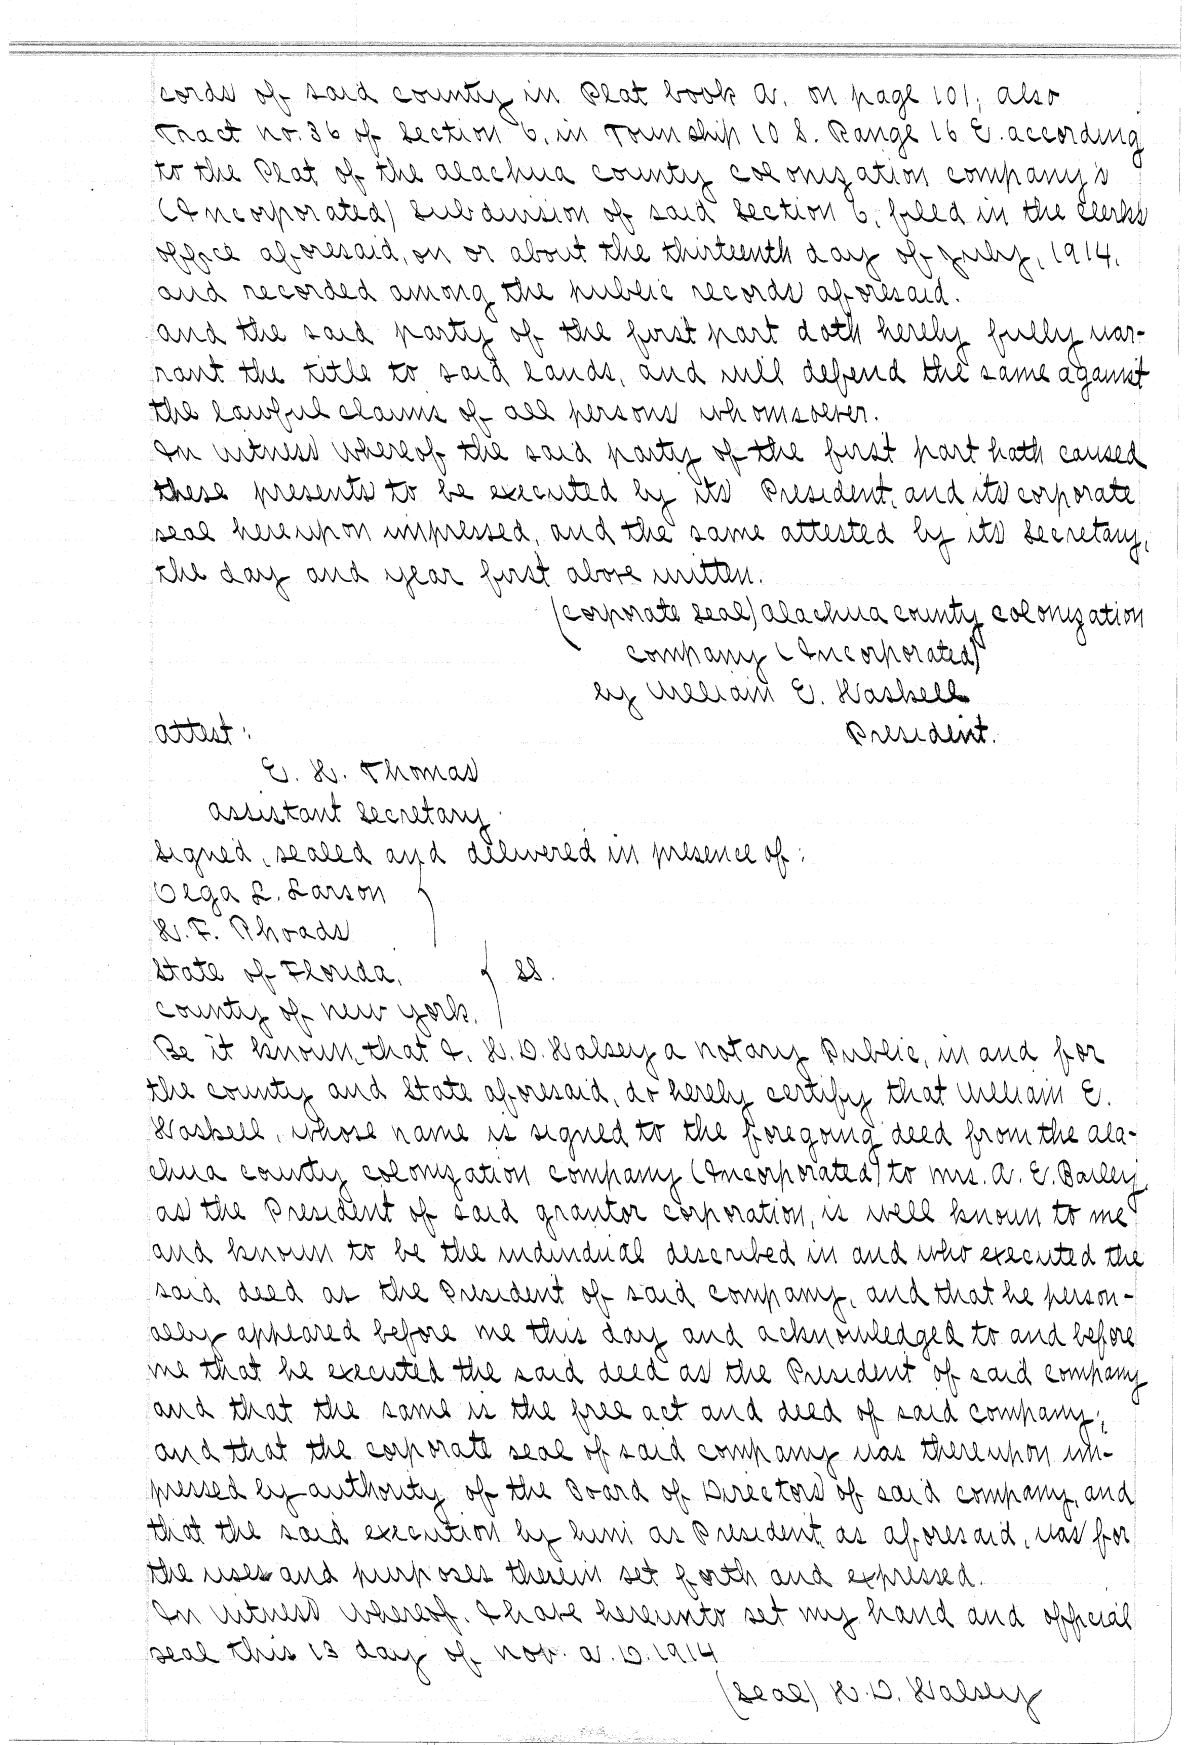 cords of said county in Plat book A. on page 101, also
Tract no. 36 of Section 6, in Township 10 S. Range 16 E. according
to the Plat of the Alachua County Colonization Company's
(Incorporated) Subdivision of said Section 6, filed in the Clerks
office aforesaid, on or about the thirteenth day of July, 1914.
and recorded among the public records aforesaid.
And the said party of the first part doth hereby fully war-
rant the title to said lands, and will defend the same against
the lawful claims of all persons whomsoever.
In witness whereof the said party of the first part hath caused
these presents to be executed by its President, and its corporate
seal hereupon impressed, and the same attested by its Secretary,
the day and year first above written.
(Corporate Seal) Alachua County Colonization
Company (Incorporated)
by William E. Haskell
President.
Attest:
E. H. Thomas
Assistant Secretary
Signed, sealed and delivered in presence of:
Olga L. Larson
H. F. Rhoads
State of Florida,
County of New York. SS.
Be it known, that I, H. D. Halsey a Notary Public, in and for
the County and State aforesaid, do hereby certify that William E.
Haskell, whose name is signed to the foregoing deed from the Ala-
chua County Colonization Company (Incorporated) to Mrs. A. E. Bailey
as the President of said grantor corporation, is well known to me
and known to be the individual described in and who executed the
said deed as the President of said company, and that he person-
ally appeared before me this day and acknowledged to and before
me that he executed the said deed as the President of said company
and that the same is the free act and deed of said company;
and that the corporate seal of said company was thereupon im-
pressed by authority of the Board of Directors of said company, and
that the said execution by him as President, as aforesaid, was for
the uses and purposes therein set forth and expressed.
In witness whereof, I have hereunto set my hand and official
seal this 13 day of Nov. A. D. 1914
(Seal) H. D. Halsey